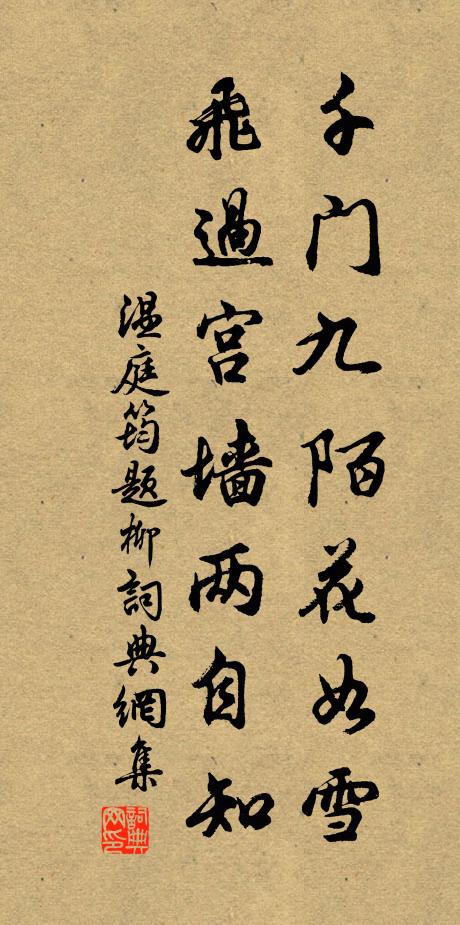 千门九陌花如雪
飛過宫墙两自知
温庭筠题柳詞典網集
詞典网印